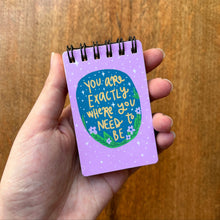 YOU ARE
EXACTLY
WHERE YOU
NEED TO
BE